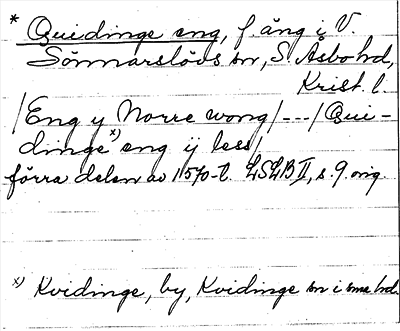 * Quidinge eng, f. äng i V.
Sönnarslövs sn, S. Åsbo hd,
Krist. l.
/Eng y Norre wong/---/Qui-
dinge x) eng ÿ less/
förra delen av 1570-t. LSLB II, s. 9. orig.
x) Kvidinge, by, Kvidinge sn i sma hd.